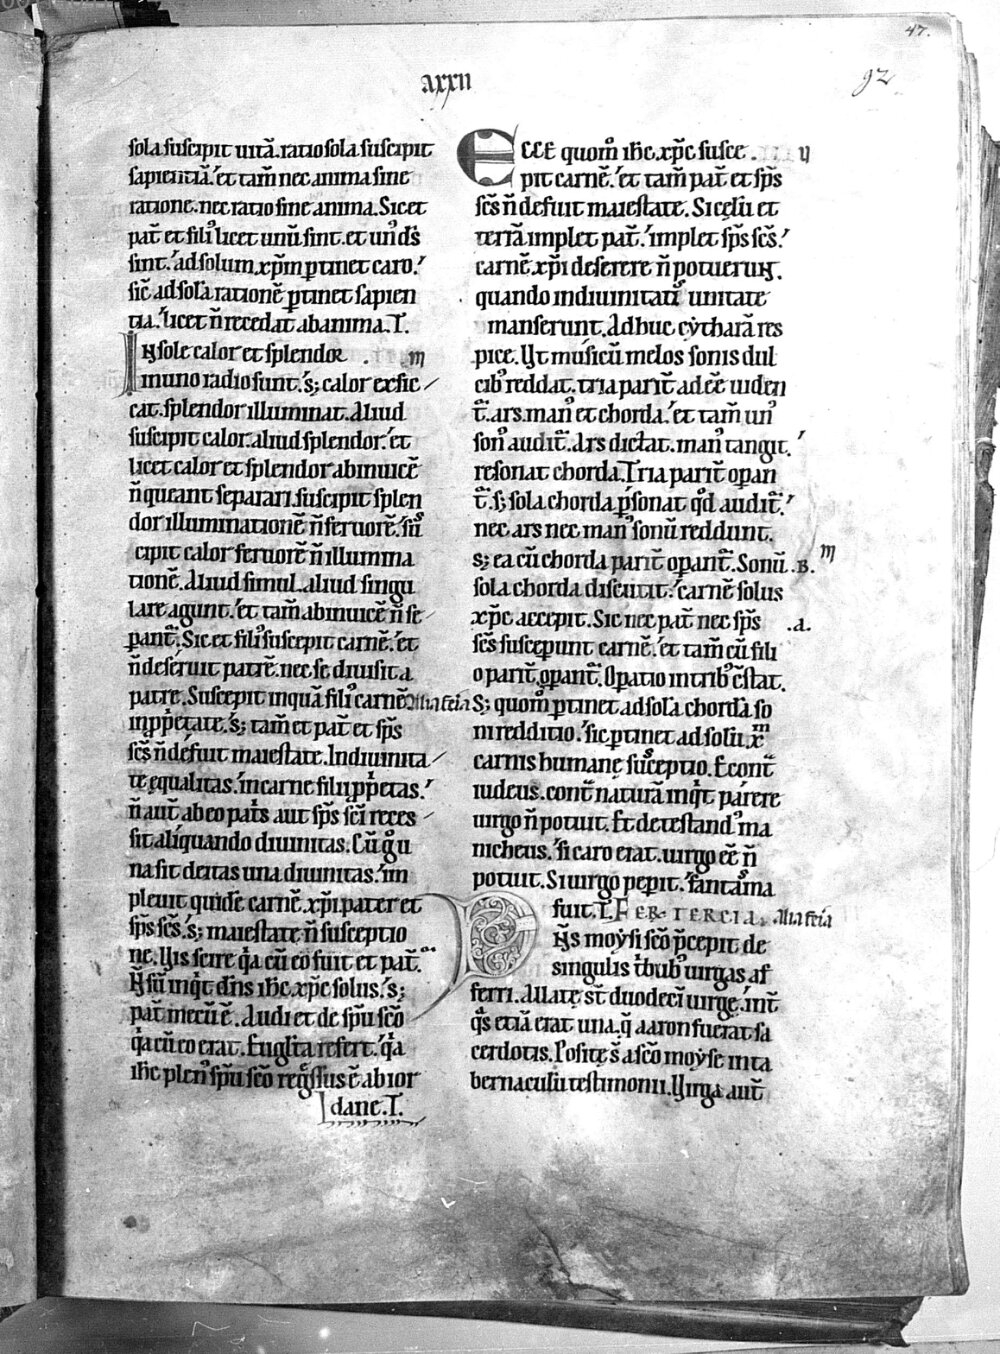 47.
92
AXXII
sola suscipit uitā. ratio sola suscipit
sapientiā. et tam̄ nec anima sine
ratione. nec ratio sine anima. Sic et
pat̄ et filiꝰ licet unū sint. et unꝰ ds̄
sint. ad solum xp̄m ꝑtinet caro.
sic̄ ad solā rationē ꝑtinet sapien
tia. licet n̄ recedat ab anima. T.
IN sole calor et splendor . m
in uno radio sunt. s; calor exsic
cat. splendor illuminat. Aliud
suscipit calor. aliud splendor. et
licet calor et splendor ab inuicē
n̄ queant separari. suscipit splen
dor illuminationē n̄ feruorē. sus
cipit calor feruorē n̄ illumina
tionē. Aliud simul. aliud singu
lare agunt. et tam̄ ab inuicē n̄ se
parant᷑. Sic et filiꝰ suscepit carnē. et
n̄ deseruit patrē. nec se diuisit a
patre. Suscepit inquā filiꝰ carnē alia feia
in ꝓp̄etate. s; tam̄ et pat̄ et sp̄s
sc̄s n̄ defuit maiestate. In diuinita
te ęqualitas. in carne filii ꝓp̄etas.
n̄ aut̄ ab eo pat̄s aut sp̄s sc̄i reces
sit aliquando diuinitas. Cū gͦ u
na sit deitas una diuinitas. im
pleuit quidē carnē xp̄i pater et
sp̄s sc̄s. s; maiestate n̄ susceptio
ne. Uis scire qͣ cū eo fuit et pat̄.
N̄ sū inqͥt dn̄s ih̄c xp̄c solus. s;
pat̄ mecū ē. Audi et de sp̄u sc̄o
qͣ cū eo erat. Euglīa refert. qͣ
ih̄c plenꝰ sp̄u sc̄o regͤssus ē ab ior
dane. T.
ECCE quom̄ ih̄c xp̄c susce . ii
pit carnē. et tam̄ pat̄ et sp̄s
sc̄s n̄ defuit maiestate. Si cęlū et
terrā implet pat̄. implet sp̄s sc̄s.
carnē xp̄i deserere n̄ potuerunt.
quando in diuinitatis unitate
manserunt. Adhuc cytharā res
pice. Ut musicū melos sonis dul
cibꝰ reddat. tria parit̄ adēē uiden
t᷑. ars. manꝰ et chorda. et tam̄ unꝰ
sonꝰ audit᷑. Ars dictat. manꝰ tangit.
resonat chorda. Tria parit̄ opan
t᷑. s; sola chorda ꝑsonat qd̄ audit᷑.
nec ars nec manꝰ sonū reddunt.
s; ea cū chorda parit̄ opant᷑. Sonū .B. m
sola chorda disentit. carnē solus
xp̄c accepit. Sic nec pat̄ nec sp̄s .a.
sc̄s susceperunt carnē. et tam̄ cū fili
o parit̄ opant᷑. Opatio in tribꝰ cstat.
S; quom̄ ꝑtinet ad solā chordā so
ni redditio. sic ꝑtinet ad solū xp̄m
carnis humanę susceptio. Econt̄
iudeus. cont̄ naturā inqͥt parere
uirgo n̄ potuit. Et detestandꝰ ma
nicheus. si caro erat. uirgo ēē n̄
potuit. Si uirgo peperit. fantasma
fuit. T. FER. TERCIA. alia feia
DNS moysi sc̄o p̄cepit de
singulis tͥbubꝰ uirgas af
ferri. Allatę st̄ duodeci uirgę. int̄
qͣs etiā erat una. q̄ aaron fuerat sa
cerdotis. Positę s̄ a sc̄o moyse in ta
bernaculū testimonii. Uirga aut̄